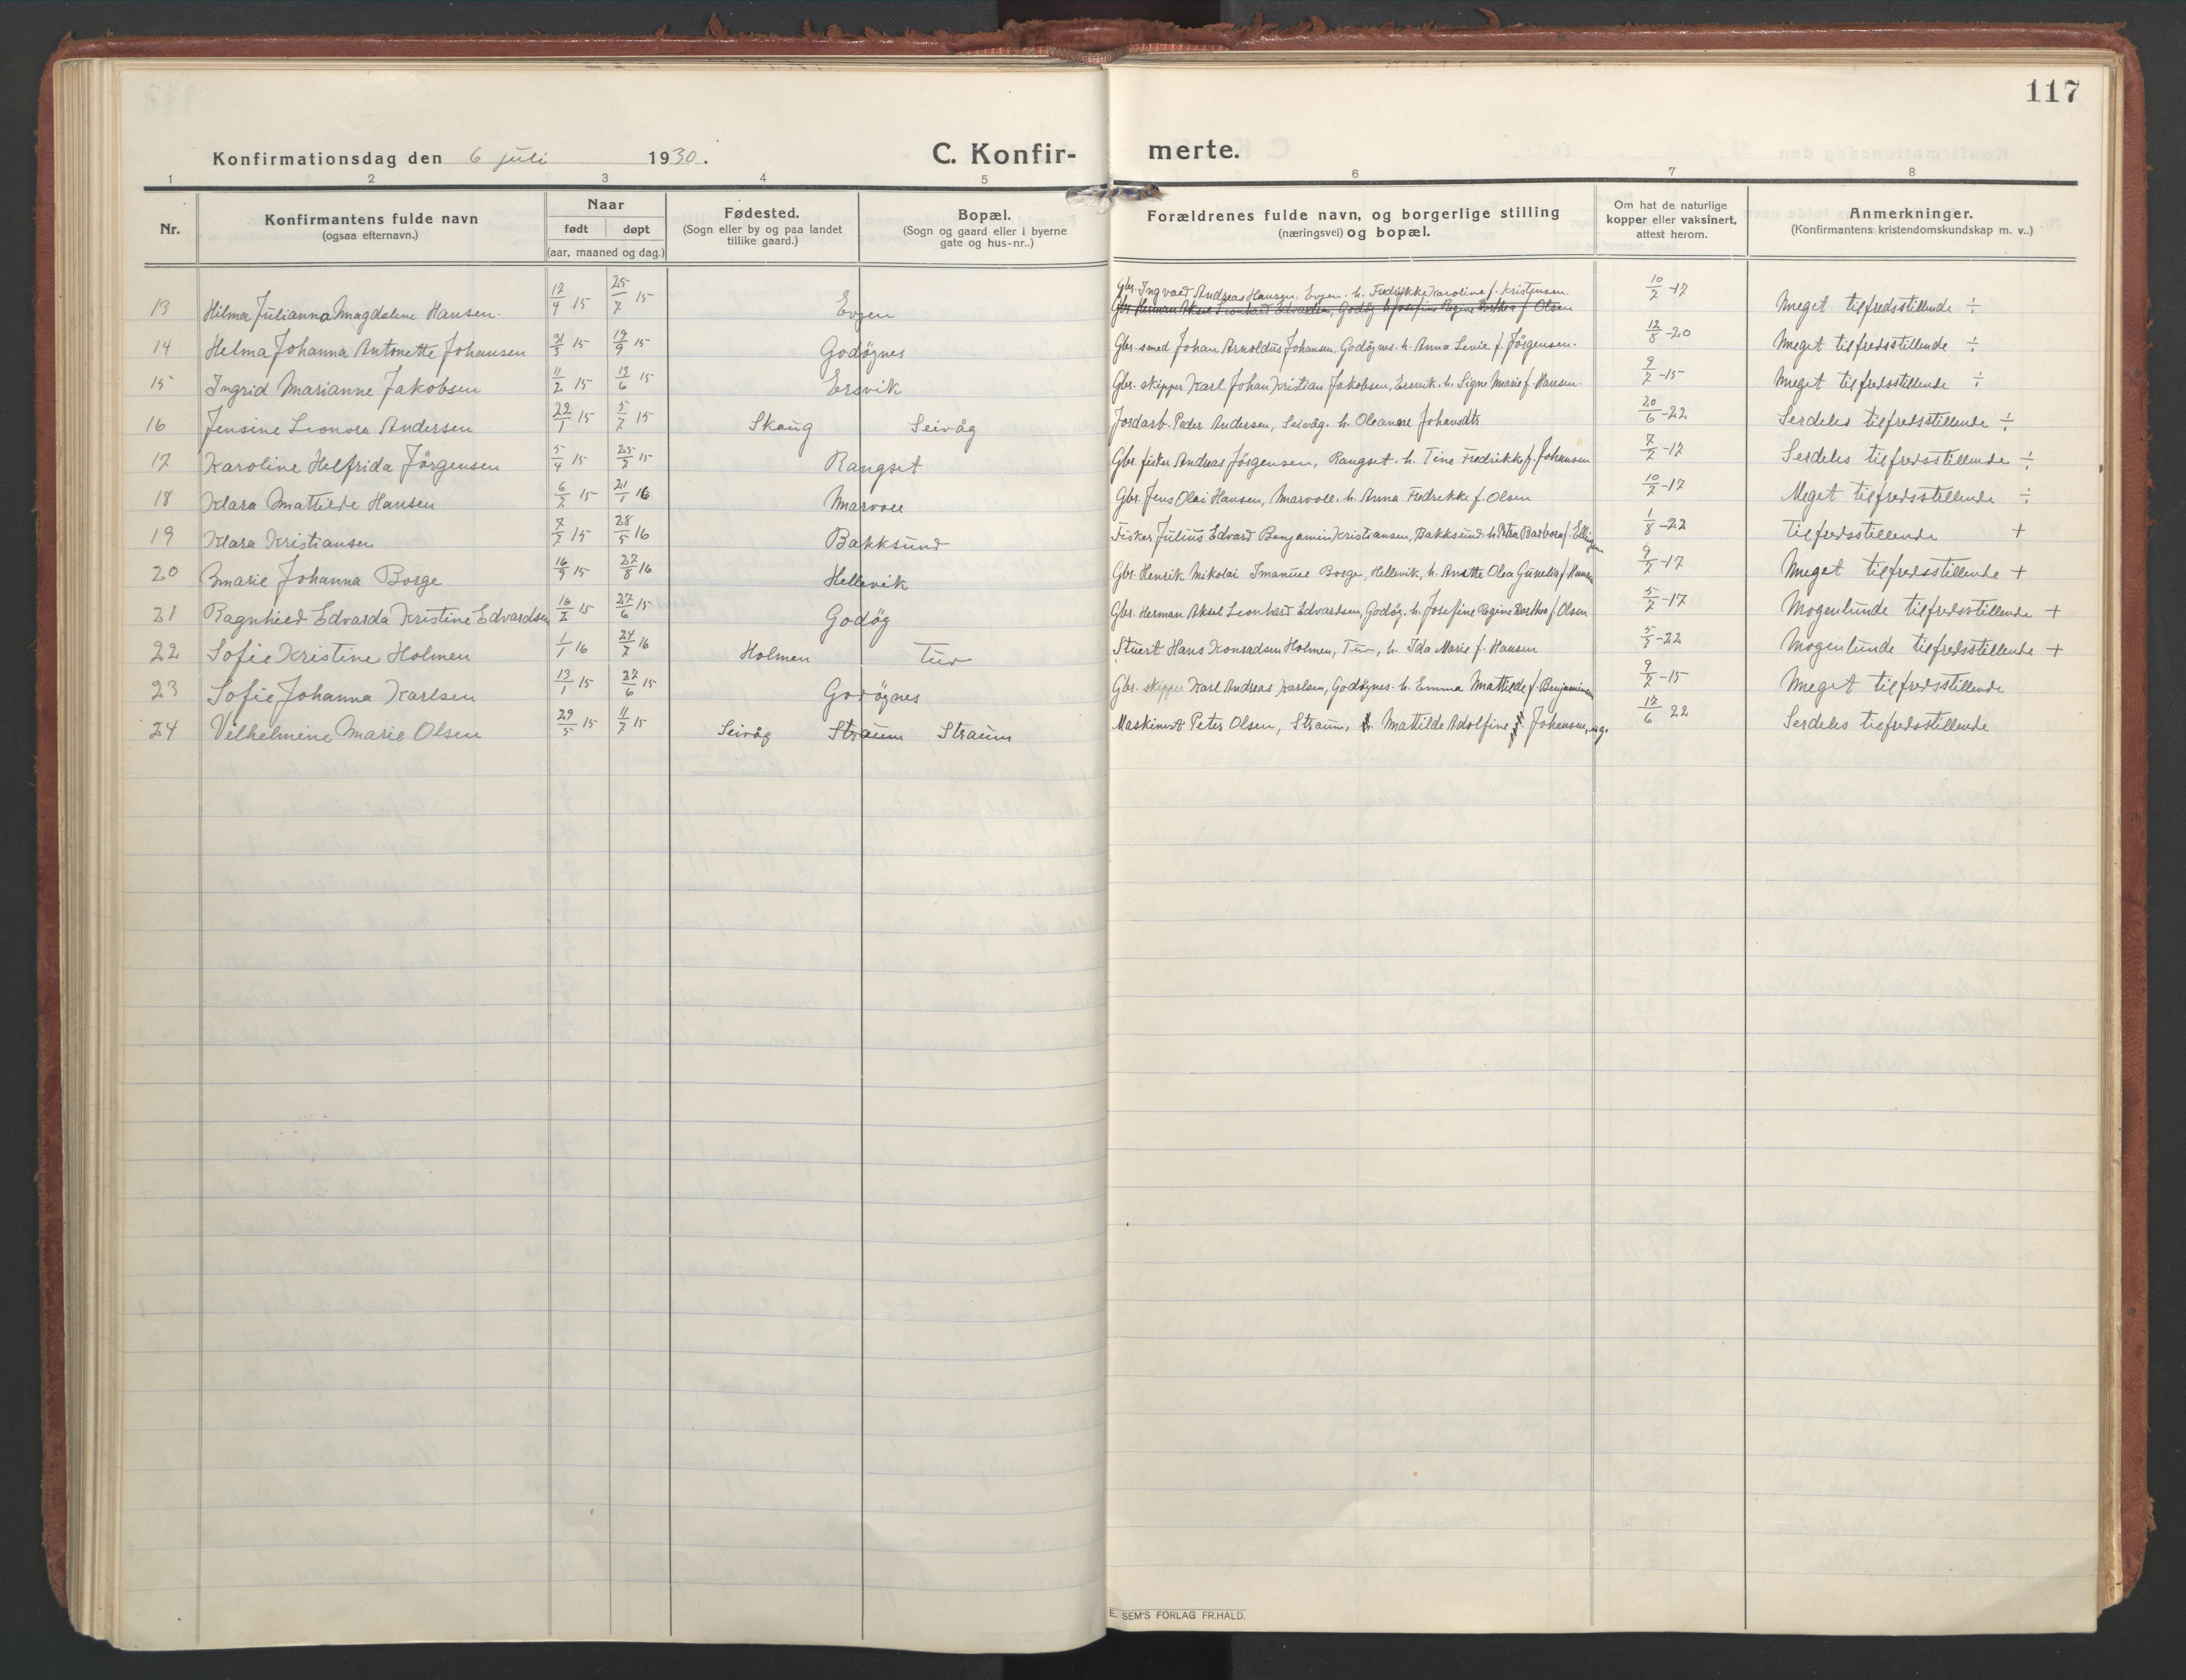 117
Konfirmationsdag den 6 juli 1930. C. Konfir- merte.
1 2 3 4 5 6 7 8
Nr. Konfirmantens fulde navn (ogsaa efternavn.) Naar født døpt (aar, maaned og dag.) Fødested. (Sogn eller by og paa landet tillike gaard.) Bopæl. (Sogn og gaard eller i byerne gate og hus-nr..) Forældrenes fulde navn, og borgerlige stilling (næringsvei) og bopæl. Om hat de naturlige kopper eller vaksinert, attest herom. Anmerkninger. (Konfirmantens kristendomskundskap m. v..)
Gbr. Ingvald Andreas Hansen, Evjen. h. Fredrikke Karoline f. Kristensen.
13 Hilma Julianna Magdalene Hansen. 12/4 15 25/7 15 Evjen Gbr. Herman Aksel Leonhard Edvardsen, Godøy h. Josefine Regine Dorthea f Olsen 10/7-17 Meget tilfredsstillende ÷
14 Helma Johanna Antonette Johansen 31/3 15 19/9 15 Godøynes Gbr. smed Johan Arnoldus Johansen, Godøynes. h. Anna Levie f. Jörgensen. 12/8-20 Meget tilfredsstillende ÷
15 Ingrid Marianne Jakobsen 11/2 15 13/6 15 Ersvik Gbr. skipper Karl Johan Kristian Jakobsen, Ersvik. h. Signe Marie f. Hansen. 9/7-15 Meget tilfredsstillende ÷
16 Jensine Leonora Andersen 22/1 15 5/7 15 Skaug Seivåg Jordarb. Peder Andersen, Seivåg. h. Oleanna Johansdtr 20/6-22 Serdeles tilfredsstillende ÷
17 Karoline Helfrida Jörgensen 5/4 15 25/7 15 Rangset Gbr. fisker Andreas Jörgensen, Rangset. h. Tine Fredrikke f. Johansen 7/7-17 Serdeles tilfredsstillende ÷
18 Klara Mathilde Hansen 6/7 15 21/1 16 Marvoll Gbr. Jens Olai Hansen, Marvoll. h. Anna Fredrekke f. Olsen 10/7-17 Meget tilfredsstillende ÷
19 Klara Kristiansen 7/7 15 28/5 16 Bakksund Fisker Julius Edvard Benjamin Kristiansen, Bakksund h. Petra Barbora f. Ellingsen 1/8-22 Tilfredsstillende +
20 Marie Johanna Borge 16/9 15 27/8 16 Hellevik Gbr. Henrik Mikolai Imanuel Borge, Hellevik, h. Anette Olea Gunelia f. Hansen 9/7-17 Meget tilfredsstillende +
21 Ragnhild Edvarda Kristine Edvardsen 16/2 15 27/6 15 Godøy Gbr. Herman Aksel Leonhard Edvardsen, Godøy. h. Josefine Regine Dorthea f. Olsen 5/7-17 Mogenlunde tilfredsstillende +
22 Sofie Kristine Holmen 1/1 16 24/7 16 Holmen Tuv Stuert Hans Konradsen Holmen, Tuv, h. Ida Marie f. Hansen 5/7-22 Mogenlunde tilfredsstillende +
23 Sofie Johanna Karlsen 13/1 15 27/6 15 Godøynes Gbr. skipper Karl Andreas Karlsen, Godøynes. h. Emma Mathilde f. Benjaminsen 9/7-15 Meget tilfredsstillende
24 Vilhelmine Marie Olsen 29/5 15 11/7 15 Seivåg Straum Straum Maskinist Peter Olsen, Straum, h. Mathilde Adolfine f Johansen, ug. 12/6 22 Serdeles tilfredsstillende
E. SEM'S FORLAG FR.HALD.